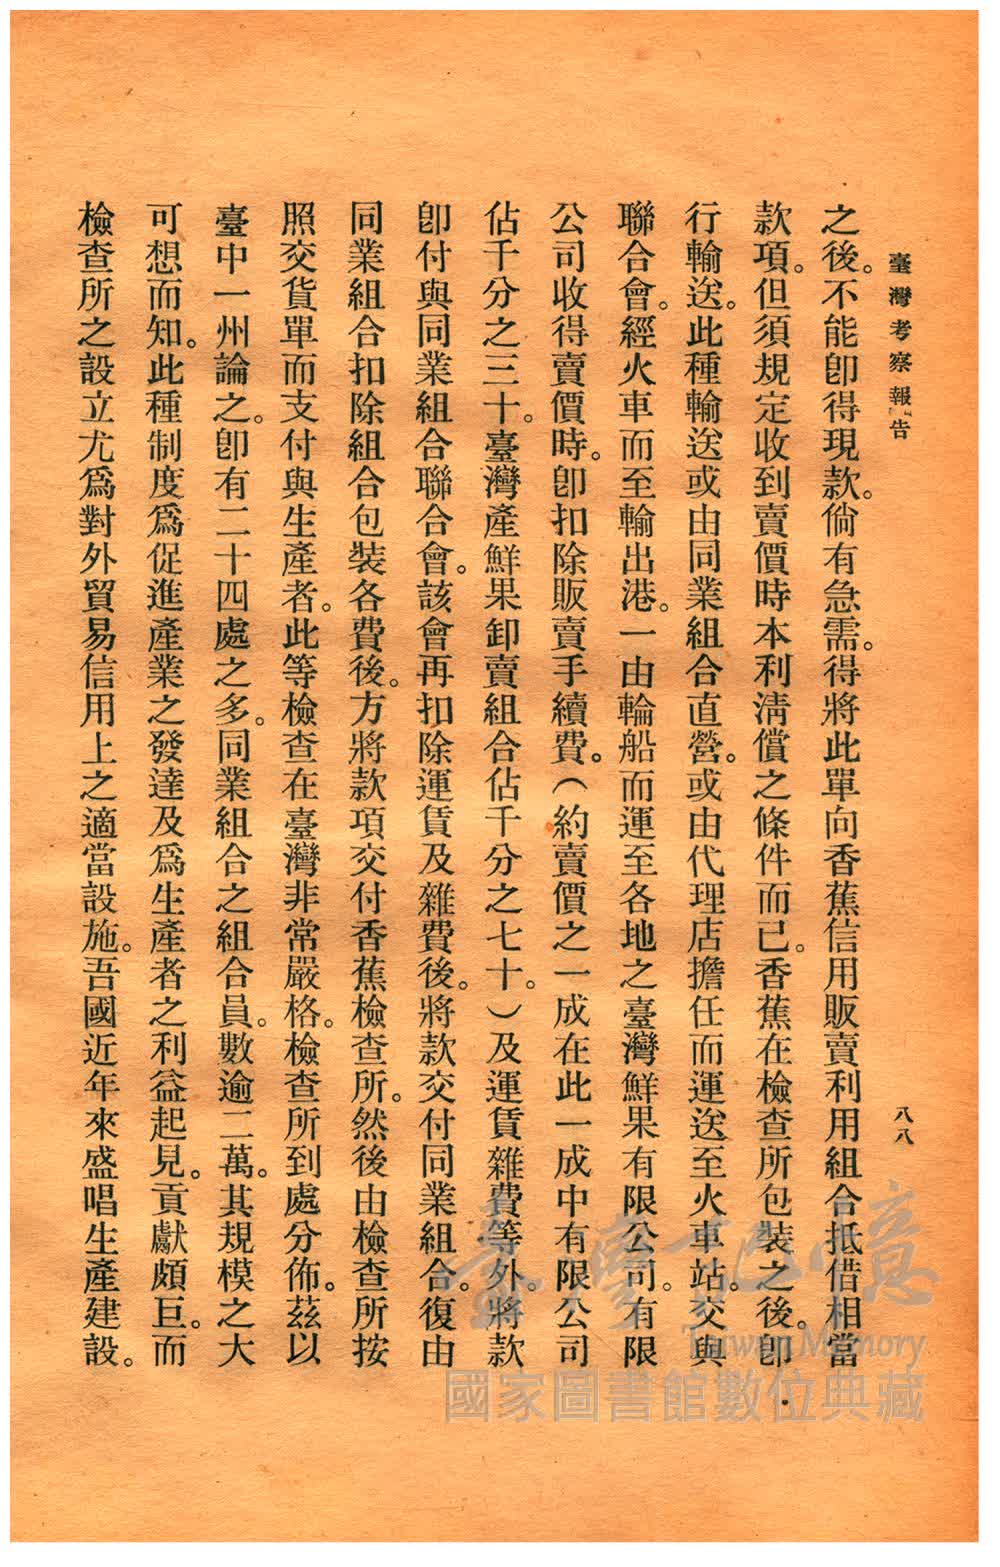 臺灣考察報告
八八
之後。不能卽得現款。倘有急需。得將此單向香蕉信用販賣利用組合抵借相當
款項。但須規定收到賣價時本利淸償之條件而已。香蕉在檢查所包裝之後。卽
行輸送。此種輸送或由同業組合直營。或由代理店擔任而運送至火車站。交與
聯合會。經火車而至輸出港。一由輪船而運至各地之臺灣鮮果有限公司。有限
公司收得賣價時。卽扣除販賣手續費。（約賣價之一成在此一成中有限公司
佔千分之三十。臺灣產鮮果卸賣組合佔千分之七十。）及運賃雜費等外。將款
卽付與同業組合聯合會。該會再扣除運賃及雜費後。將款交付同業組合。復由
同業組合扣除組合包裝各費後。方將款項交付香蕉檢查所。然後由檢查所按
照交貨單而支付與生產者。此等檢查在臺灣非常嚴格。檢查所到處分佈。茲以
臺中一州論之。卽有二十四處之多。同業組合之組合員。數逾二萬。其規模之大
可想而知。此種制度爲促進產業之發達及爲生產者之利益起見。貢獻頗巨。而
檢查所之設立尤爲對外貿易信用上之適當設施。吾國近年來盛唱生產建設。
臺灣記憶
Taiwan Memory
國家圖書館數位典藏